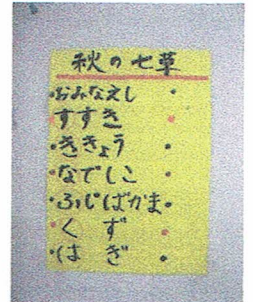 秋の七草
・おみなえし・
・すすき・
・ききょう・
・なでしこ・
・ふじばかま・
・くず・
・はぎ・